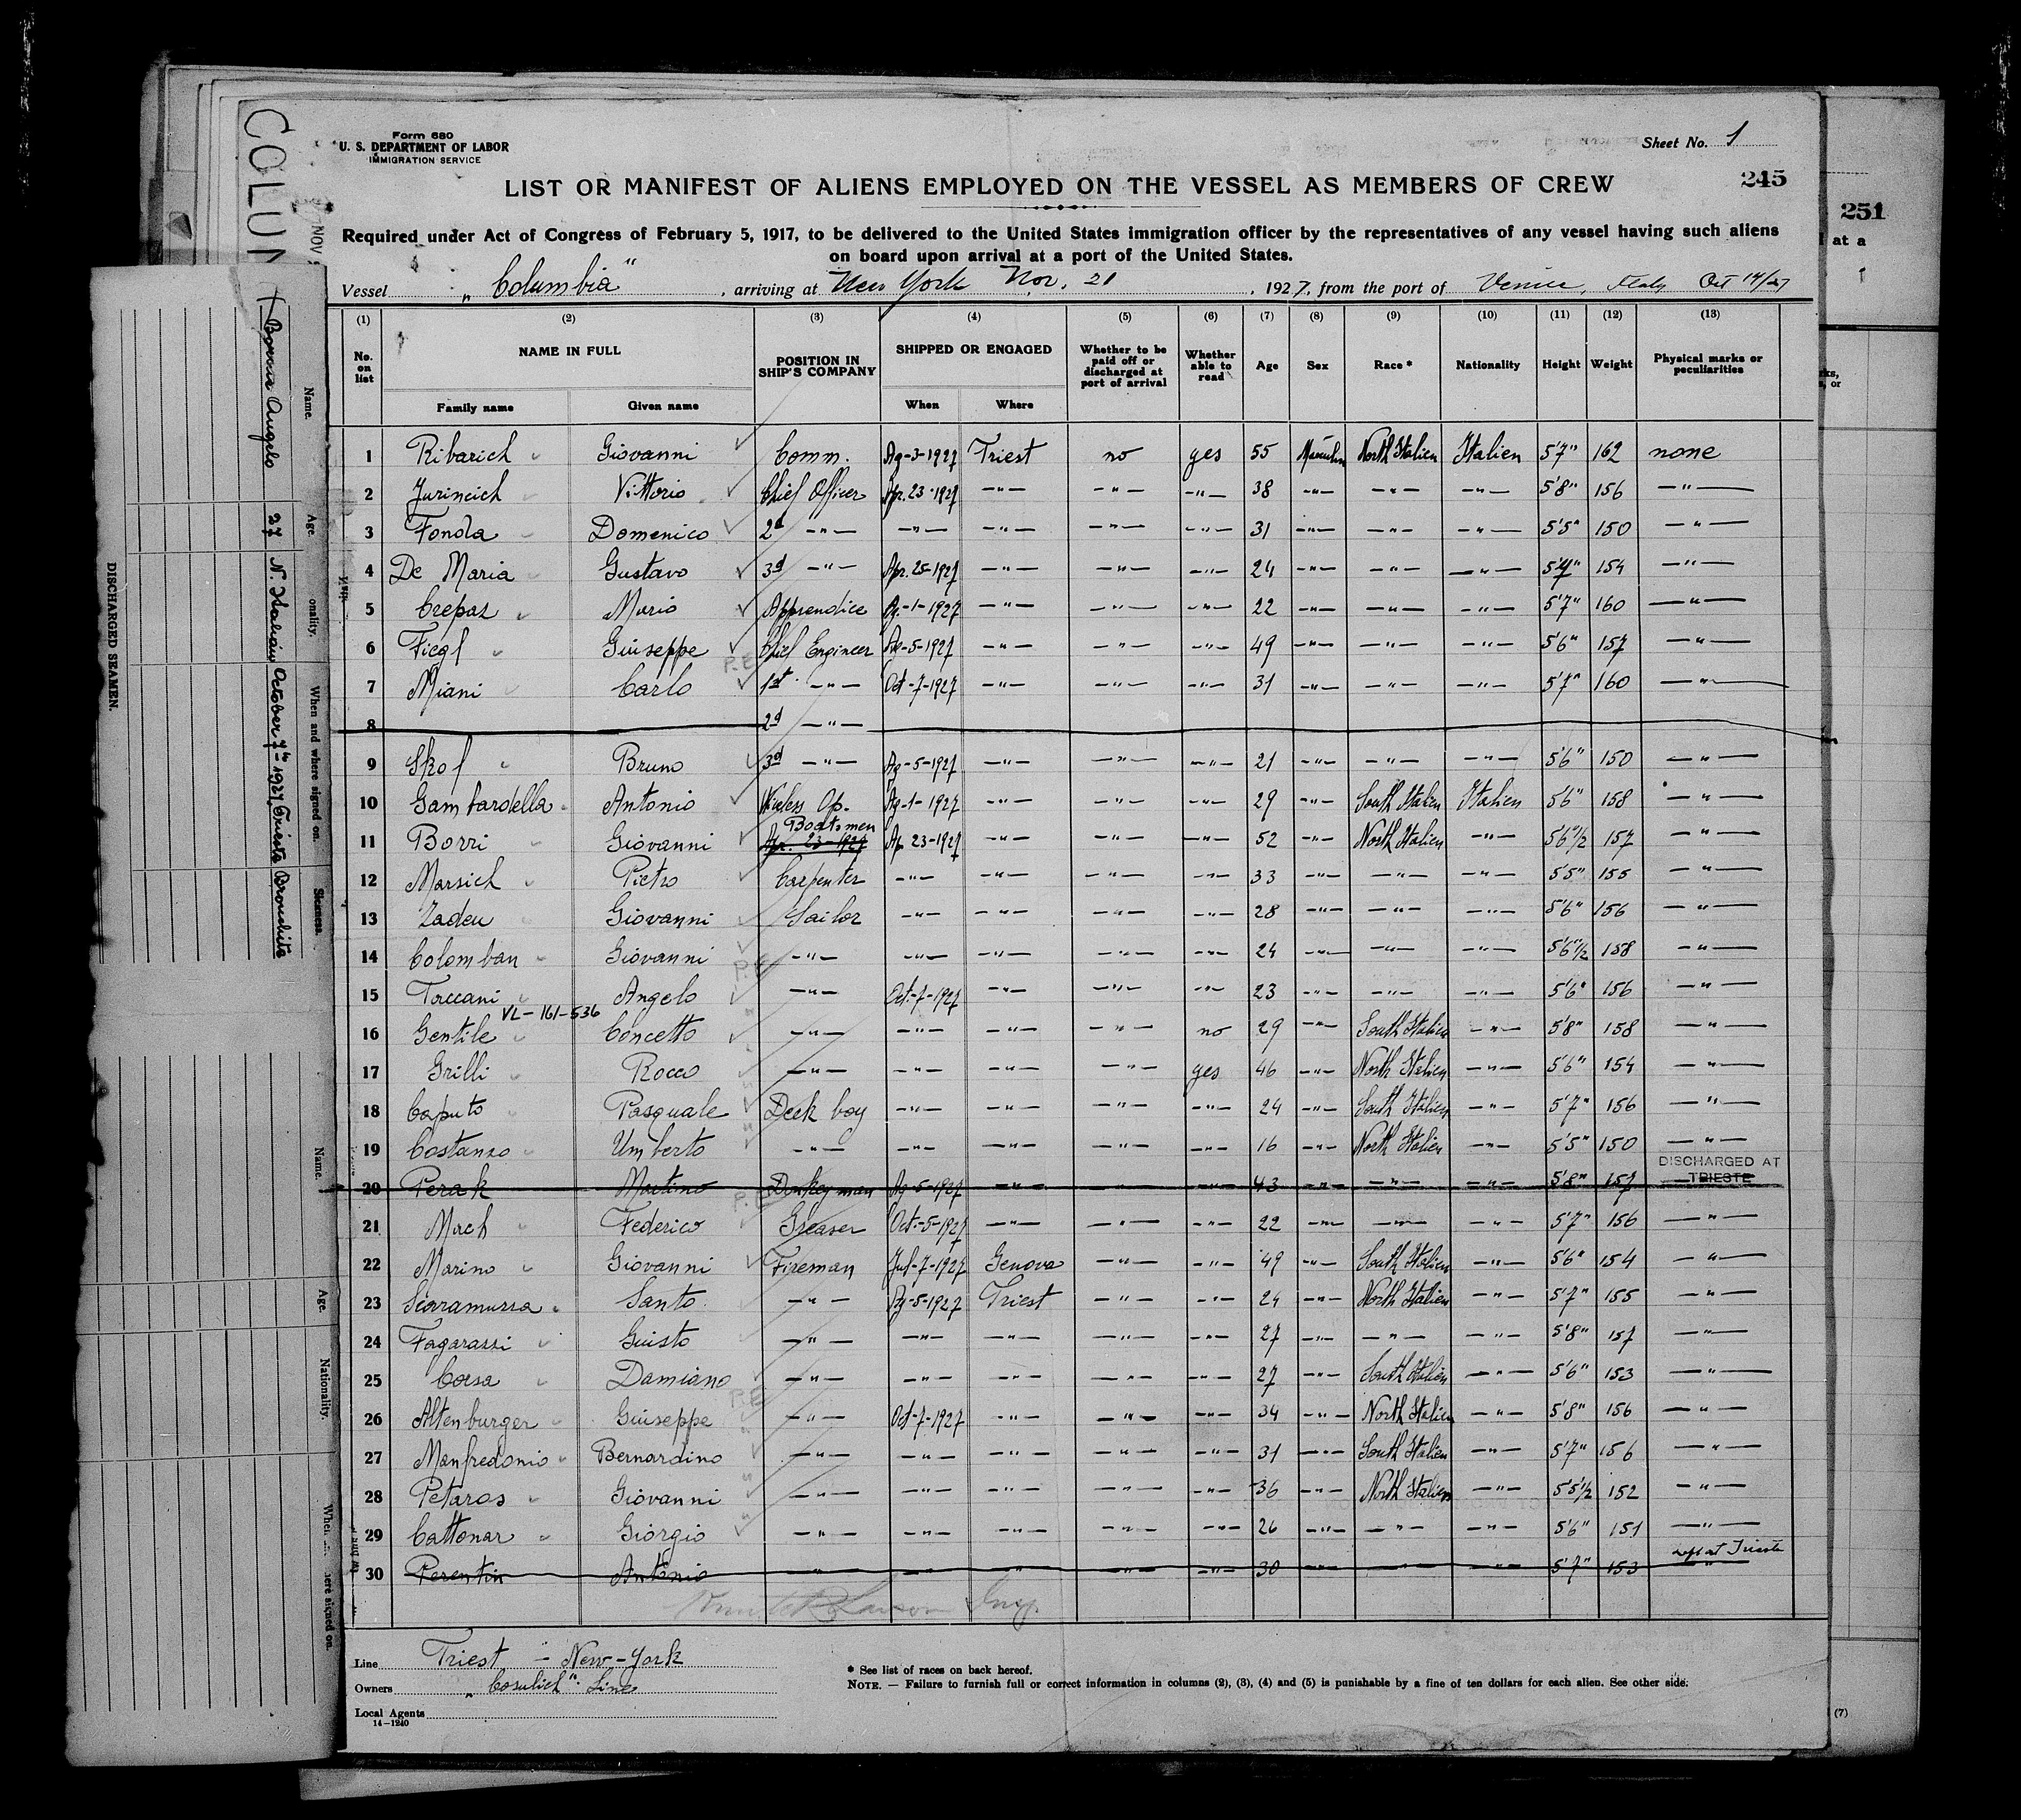 COLUM
NOV
Form 680
U. S. DEPARTMENT OF LABOR
IMMIGRATION SERVICE
Sheet No. 1
LIST OR MANIFEST OF ALIENS EMPLOYED ON THE VESSEL AS MEMBERS OF CREW
245
251
Required under Act of Congress of February 5, 1917, to be delivered to the United States immigration officer by the representatives of any vessel having such aliens
on board upon arrival at a port of the United States.
at a
Vessel „ Columbia", arriving at New York Nov. 21, 1927, from the port of Venice, Italy Oct 14/27
(1) (2) (3) (4) (5) (6) (7) (8) (9) (10) (11) (12) (13)
No. on list NAME IN FULL Family name Given name POSITION IN SHIP'S COMPANY SHIPPED OR ENGAGED When Where Whether to be paid off or discharged at port of arrival Whether able to read Age Sex Race * Nationality Height Weight Physical marks or peculiarities
1 Ribarich Giovanni Comm. Ag-3-1927 Triest no yes 55 Masculin North Italien Italien 5'7" 162 none
2 Jurincich Vittorio Chief Officer Apr. 23-1927 —"— —"— —"— 38 —"— —"— —"— 5'8" 156 —"—
3 Fonda Domenico 2d —"— —"— —"— —"— —"— 31 —"— —"— —"— 5'5" 150 —"—
4 De Maria Gustavo 3d —"— Apr. 25-1927 —"— —"— —"— 24 —"— —"— —"— 5'7" 154 —"—
5 Crepaz Mario Apprendice Ag-1-1927 —"— —"— —"— 22 —"— —"— —"— 5'7" 160 —"—
6 Fiegl Giuseppe Chief Engineer Ag-5-1927 —"— —"— —"— 49 —"— —"— —"— 5'6" 157 —"—
P.E
7 Miani Carlo 1st —"— Oct-7-1927 —"— —"— —"— 31 —"— —"— —"— 5'7" 160 —"—
8 2d —"—
9 Skof Bruno 3d —"— Ag-5-1927 —"— —"— —"— 21 —"— —"— —"— 5'6" 150 —"—
10 Gambardella Antonio Wireless Op. Ag-1-1927 —"— —"— —"— 29 —"— South Italien Italien 5'6" 158 —"—
11 Borri Giovanni Apr. 23-1927 Boatsmen Ap 23-1927 —"— —"— —"— 52 —"— North Italien —"— 5'6"1/2 157 —"—
12 Marsich Pietro Carpenter —"— —"— —"— —"— 33 —"— —"— —"— 5'5" 155 —"—
13 Zadeu Giovanni Sailor —"— —"— —"— —"— 28 —"— —"— —"— 5'6" 156 —"—
14 Colomban Giovanni —"— —"— —"— —"— —"— 24 —"— —"— —"— 5'6"1/2 158 —"—
P.E
15 Toccani Angelo —"— Oct-7-1927 —"— —"— —"— 23 —"— —"— —"— 5'6" 156 —"—
VL-161-536
16 Gentile Concetto —"— —"— —"— —"— no 29 —"— South Italien —"— 5'8" 158 —"—
17 Grilli Rocco —"— —"— —"— —"— yes 46 —"— North Italien —"— 5'6" 154 —"—
18 Caputo Pasquale Deck boy —"— —"— —"— —"— 24 —"— South Italien —"— 5'7" 156 —"—
19 Costanzo Umberto —"— —"— —"— —"— 16 —"— North Italien —"— 5'5" 150 —"—
DISCHARGED AT TRIESTE
20 Perak Martino Donkeyman Ag-5-1927 —"— —"— —"— 43 —"— —"— —"— 5'8" 157
P.E
21 Mach Federico Greaser Oct.-5-1927 —"— —"— —"— 22 —"— —"— —"— 5'7" 156 —"—
22 Marino Giovanni Fireman Jul-7-1927 Genova —"— —"— 49 —"— South Italien —"— 5'6" 154 —"—
23 Scaramuzza Santo —"— Ag-5-1927 Triest —"— —"— 24 —"— North Italien —"— 5'7" 155 —"—
24 Fagarazzi Guisto —"— —"— —"— —"— —"— 27 —"— —"— —"— 5'8" 157 —"—
25 Corsa Damiano —"— —"— —"— —"— —"— 27 —"— South Italien —"— 5'6" 153 —"—
P.E
26 Altenburger Giuseppe —"— Oct-7-1927 —"— —"— —"— 34 —"— North Italien —"— 5'8" 156 —"—
27 Manfredonio Bernardino —"— —"— —"— —"— —"— 31 —"— South Italien —"— 5'7" 156 —"—
28 Petaros Giovanni —"— —"— —"— —"— —"— 36 —"— North Italien —"— 5'5 1/2 152 —"—
29 Cattonar Giorgio —"— —"— —"— —"— —"— 26 —"— —"— —"— 5'6" 151 —"—
left at Trieste
30 Perentin Antonio —"— —"— —"— —"— —"— 30 —"— —"— —"— 5'7" 153 —"—
Insp.
Line Triest - New-York
Owners „ Cosulich" Line
Local Agents
14—1240
* See list of races on back hereof.
NOTE. — Failure to furnish full or correct information in columns (2), (3), (4) and (5) is punishable by a fine of ten dollars for each alien. See other side.
(7)
DISCHARGED SEAMEN.
Name. Age. onality. When and where signed on. Sickness.
Angelo 27 N. Italian October 7th 1927, Trieste Bronchitis
Name. Age. Nationality. Whe ere signed on.